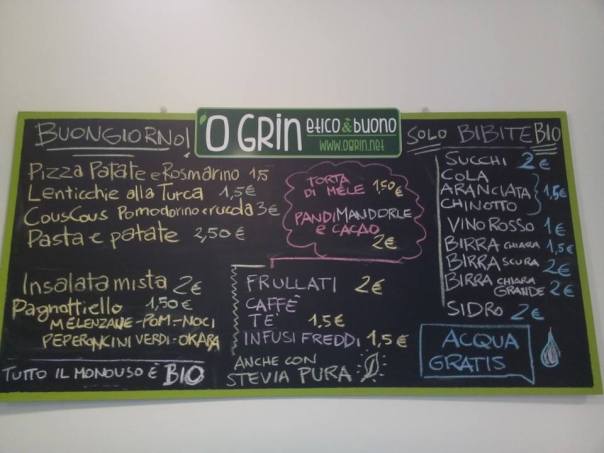 'O GRIN etico & buono
www.ogrin.net
BUONGIORNO!
Pizza Patate e Rosmarino 1,5
Lenticchie alla Turca 1,5€
CousCous Pomodorino e rucola 3€
Pasta e patate 2,50€
Insalata mista 2€
Pagnottiello 1,50€
MELENZANE-POM.-NOCI
PEPERONCINI VERDI-OKARA
TUTTO IL MONOUSO È BIO
TORTA
DI MELE 1,50€
PANDIMANDORLE
E CACAO
2€
FRULLATI 2€
CAFFÈ
TÈ 1,5€
INFUSI FREDDI 1,5€
ANCHE CON
STEVIA PURA
SOLO BIBITE BIO
SUCCHI 2€
COLA
ARANCIATA 1,5€
CHINOTTO
VINO ROSSO 1€
BIRRA CHIARA 1,5€
BIRRA SCURA 2€
BIRRA CHIARA GRANDE 2€
SIDRO 2€
ACQUA
GRATIS